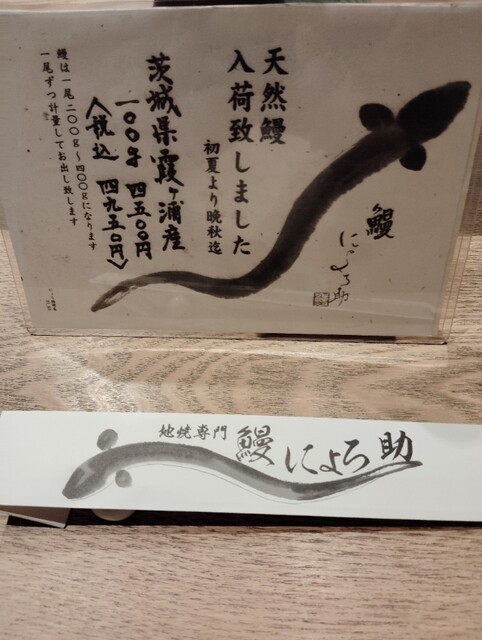 天然鰻
入荷致しました
初夏より晩秋迄
茨城県霞ヶ浦産
一〇〇g 四五〇〇円
〈税込 四九五〇円〉
鰻は一尾二〇〇g〜四〇〇gになります
一尾ずつ計量してお出し致します
鰻
にょろ助
地焼専門
鰻 にょろ助